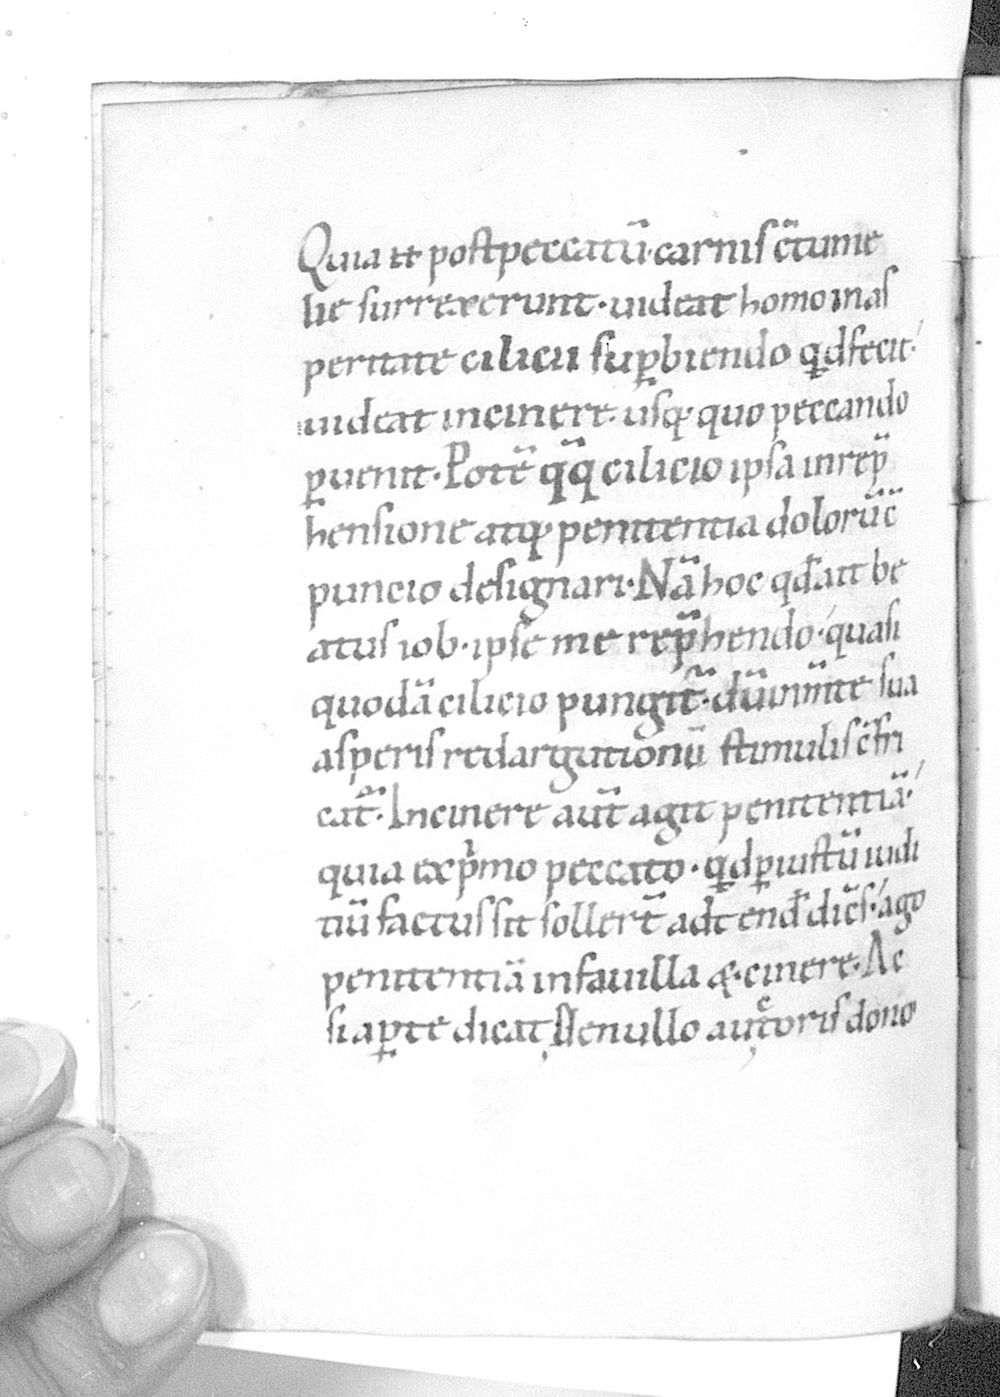 Quia et post peccatū· carnis c̄tume
lie surrexerunt· uideat homo in as
peritate cilicii sup̱biendo qḏ fecit·
uideat in cinere· usq; quo peccando
p̱uenit· Potē q̄q̄ cilicio ipsa in rep̄
hensione atq; penitentia dolorū c̄
puncio designari· Nā hoc qđ ait be
atus iob· ipse me rep̄hendo· quasi
quodā cilicio pungit᷑· dū in m̄te sua
asperis redargutionū stimulis c̄fri
cat᷑· In cinere aut̄ agit penitentiā·
quia ex p̄mo peccato· qḏ p̱ iustū iudi
tiū factus sit sollert᷑ adtendđ dic̄s· ago
penitentiā in fauilla &· cinere· Ac
si ap̱te dicat, De nullo auctoris dono